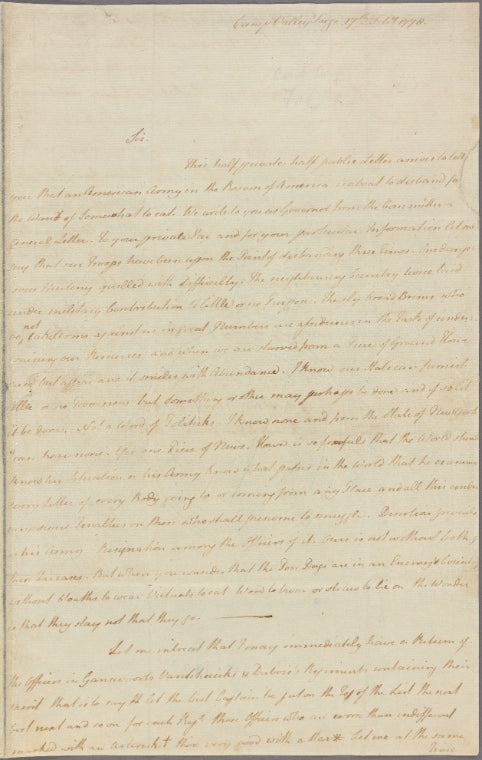 Camp Valley forge 17th Feb'y 1778.
Sir.
This half private half public Letter arrives to tell
you that an American Army in the Bosom of America is about to disband for
the Want of Somewhat to eat. We wrote to you as Governor from the Committee a
General Letter. To your private Ear and for your particular Information let me
say that our Troops have been upon the Point of disbanding three times. One dange-
rous Mutiny quelled with Difficulty. The neighbouring Country twice laid
under military Contribution to little or no Purpose. The sly broad Brims who
not
do take Arms against us in great Numbers are assiduous in the Task of under-
mining our Resources and when we are starved from a Piece of Ground
but appear and it smiles with Abundance. I know our State can furnish
little or no Provisions but something or other may perhaps be done and if so let
it be done. Not a Word of Politicks. I know none and from the State of New York
I can hear none. Yes one Piece of News. Howe is so fearful that the World should
know his Situation or his Army know what passes in the World that he examines
every Letter of every Body going to or coming from any Place and all this under
severe on those who shall presume to smuggle.
in his Army Resignation among the Officers of it. Ours is not without both
these Diseases. But when you consider that the Poor Dogs are in an Enemy's Country
without Cloaths to wear Victuals to eat Wood to burn or Straw to lie on the Wonder
is that they stay not that they go.
Let me intreat that I may immediately have a Return of
the Officers in Gansevoorts & Dubois's Regiments containing their
Merit that is to say let the best Captain be put on the Top of the List the next
best next and so on for each Reg't those Officers who are worse than indifferent
marked with an asterisk † those very good with a Star * Let me at the same
time